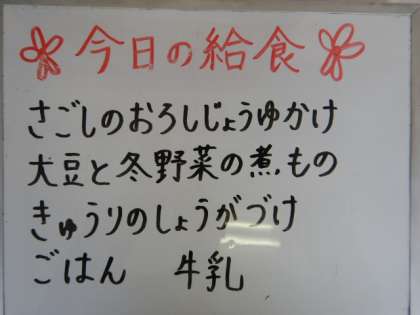 今日の給食
さごしのおろしじょうゆかけ
大豆と冬野菜の煮もの
きゅうりのしょうがづけ
ごはん 牛乳